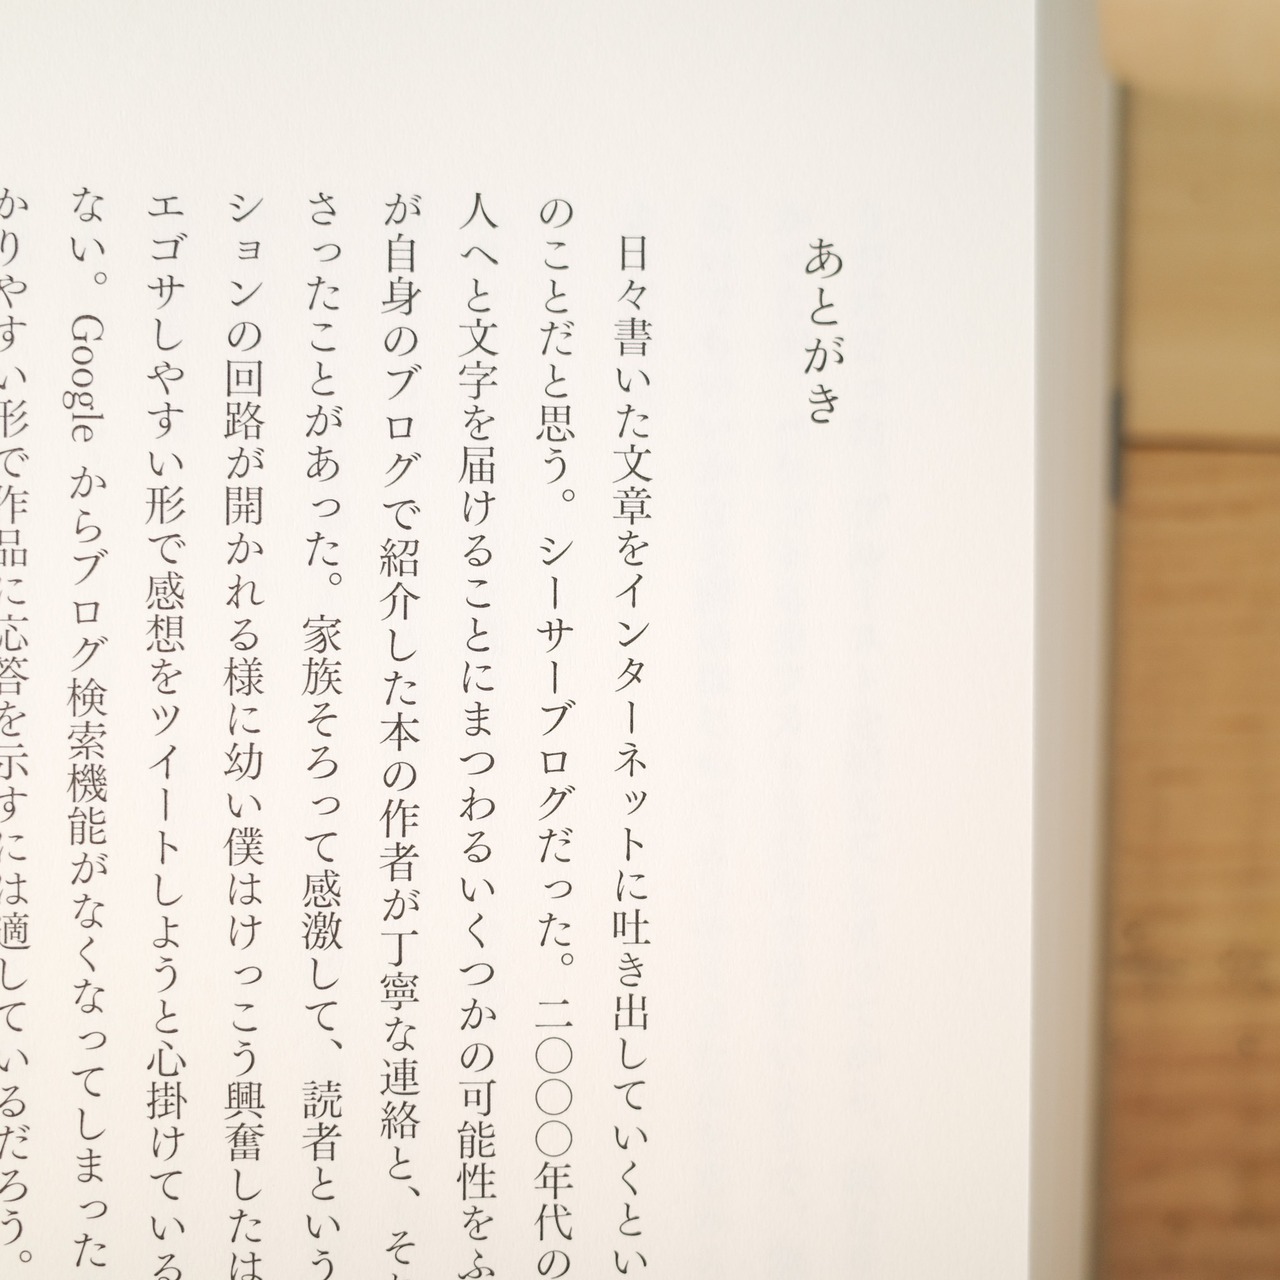 あとがき
日々書いた文章をインターネットに吐き出していくとい
のことだと思う。シーサーブログだった。二〇〇〇年代の
人へと文字を届けることにまつわるいくつかの可能性をふ
が自身のブログで紹介した本の作者が丁寧な連絡と、そ
さったことがあった。家族そろって感激して、読者という
ションの回路が開かれる様に幼い僕はけっこう興奮したは
エゴサしやすい形で感想をツイートしようと心掛けている
ない。Google からブログ検索機能がなくなってしまった
かりやすい形で作品に応答を示すには適しているだろう。